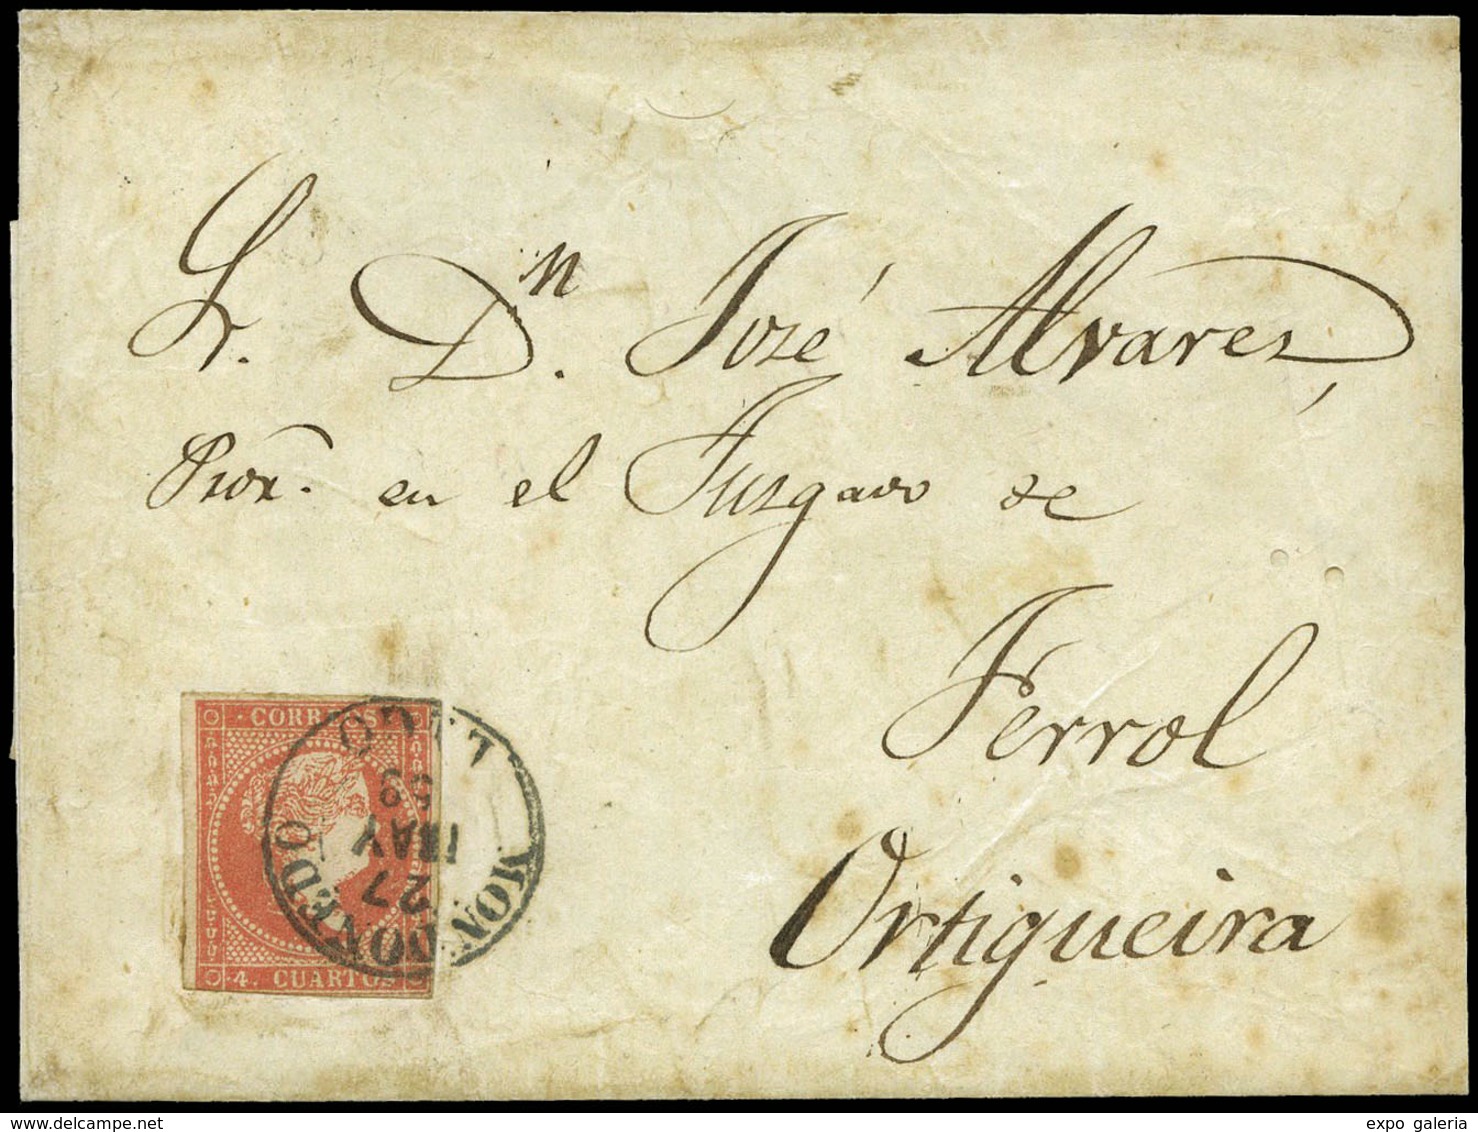 Sr. Dn. José Alvarez,
Pror. en el Juzgado de
Ferrol
Ortigueira
CORREOS
4. CUARTOS
MONDOÑEDO
27
MAY
59
LUGO
expo galeria